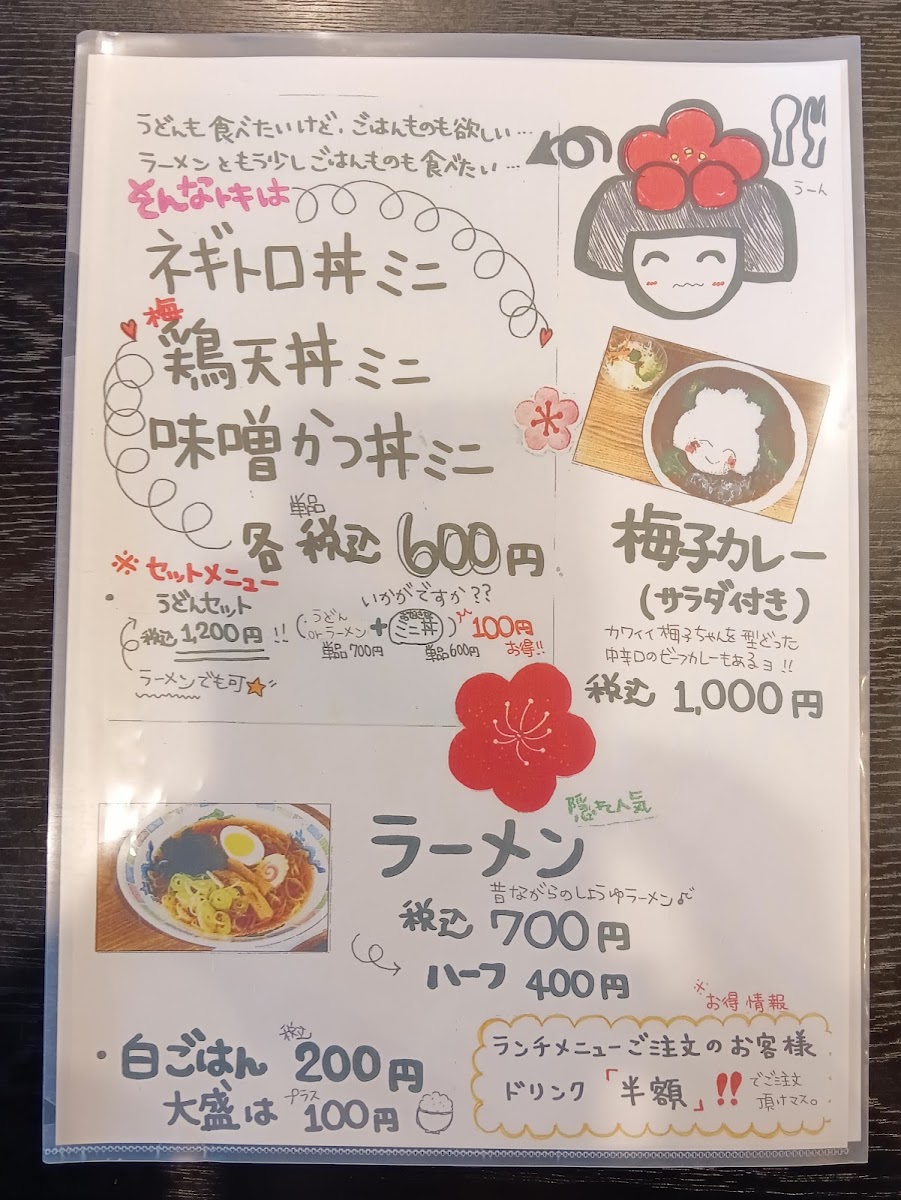 うどんも食べたいけど、ごはんものも欲しい…
ラーメンともう少しごはんものも食べたい…
そんなトキは
うーん
ネギトロ丼ミニ
梅
鶏天丼ミニ
味噌かつ丼ミニ
単品
各税込600円
※セットメニュー
うどんセット
税込1,200円!!
ラーメンでも可
いかがですか??
(うどんorラーメン+ミニ丼)
単品700円 単品600円
100円
お得!!
梅子カレー
(サラダ付き)
カワイイ梅子ちゃんを型どった
中辛口のビーフカレーもあるヨ!!
税込1,000円
隠れた人気
ラーメン
昔ながらのしょうゆラーメン♪
税込700円
ハーフ400円
・白ごはん税込200円
大盛はプラス100円
※お得情報
ランチメニューご注文のお客様
ドリンク「半額」!!でご注文
頂けマス。